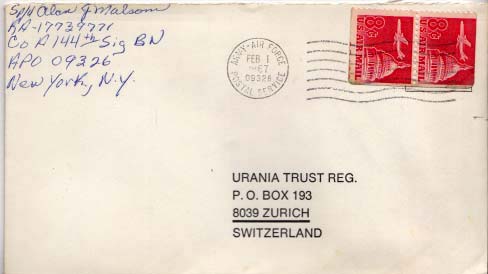 Sp/4 Alan J Malsom
RA-17737771
Co A 144th Sig BN
APO 09326
New York, N.Y.
ARMY-AIR FORCE
FEB 1
1967
09326
POSTAL SERVICE
8c 8c
US AIR MAIL US AIR MAIL
URANIA TRUST REG.
P. O. BOX 193
8039 ZURICH
SWITZERLAND